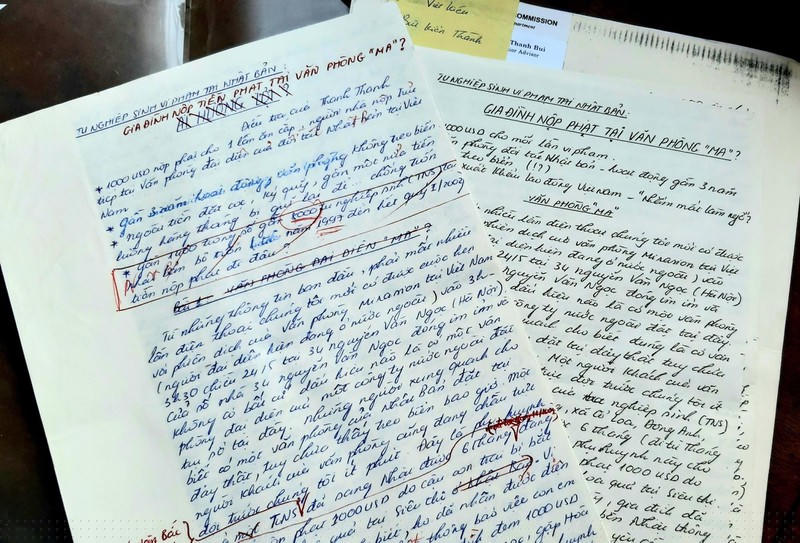 Việt kiều
Bùi Kiến Thành
COMMISSION
Thanh Bui
Advisor
TU NGHIỆP SINH VI PHẠM TẠI NHẬT BẢN:
GIA ĐÌNH NỘP TIỀN PHẠT TẠI VĂN PHÒNG "MA"?
Điều tra của Thanh Thanh
* 1000 USD nộp phạt cho 1 lần ăn cắp, người nhà nộp trực
tiếp tại Văn phòng đại diện của đối tác Nhật Bản tại Việt
Nam.
* Gần 3 năm hoạt động, văn phòng không treo biển
* Ngoài tiền đặt cọc, ký quỹ, gần một nửa tiền
lương hàng tháng bị giữ lại để chống trốn
* Gần 1000 tu nghiệp sinh (TNS) tại
Nhật Bản bỏ trốn từ năm 1997 đến hết quý I/200
tiền nộp phạt đi đâu?
VĂN PHÒNG ĐẠI DIỆN "MA"?
Từ những thông tin ban đầu, phải mất nhiều
lần điện thoại chúng tôi mới có được cuộc hẹn
với phiên dịch của Văn phòng Minamon tại Việt Nam
(người đại diện hiện đang ở nước ngoài) vào 3h-
3h30 chiều 24/5 tại 34 Nguyễn Văn Ngọc (Hà Nội)
Cửa số nhà 34 Nguyễn Văn Ngọc đóng im ỉm và
không có bất cứ dấu hiệu nào là có một văn
phòng đại diện của một công ty nước ngoài đặt
trụ sở tại đây. Những người xung quanh cho
biết có một văn phòng của Nhật Bản đặt tại
đây thật, tuy chưa thấy treo biển bao giờ. Một
người khách của văn phòng cũng đang chầu trực
đợi trước chúng tôi ít phút. Đây là phụ huynh
một TNS đã sang Nhật được 6 tháng đang
nộp phạt 1000 USD do cậu con trai bị bắt
quả tại siêu thị
biết, họ đã nhận được điện
thông báo việc con em
đem 1000 USD
TU NGHIỆP SINH VI PHẠM TẠI NHẬT BẢN:
GIA ĐÌNH NỘP PHẠT TẠI VĂN PHÒNG "MA"?
1000 USD cho mỗi lần vi phạm.
phòng đối tác Nhật Bản - hoạt động gần 3 năm
treo biển (!?)
xuất khẩu lao động Việt Nam "Nhắm mắt làm ngơ"?
VĂN PHÒNG "MA"
nhiều lần điện thoại chúng tôi mới có được
phiên dịch của văn phòng Minamon tại Việt
đại diện hiện đang ở nước ngoài) vào
24/5 tại 34 Nguyễn Văn Ngọc (Hà Nội)
Nguyễn Văn Ngọc đóng im ỉm và
dấu hiệu nào là có một văn phòng
công ty nước ngoài đặt tại đây.
quanh cho biết đúng là có văn
đặt tại đây thật tuy chưa
Một người khách của văn
trực đợi trước chúng tôi ít
của tu nghiệp sinh (TNS)
xã Cổ Loa, Đông Anh,
6 tháng (đi từ tháng
phụ huynh này cho
phạt 1000 USD do
hoa quả tại siêu thị
gia đình đã
bên Nhật thông